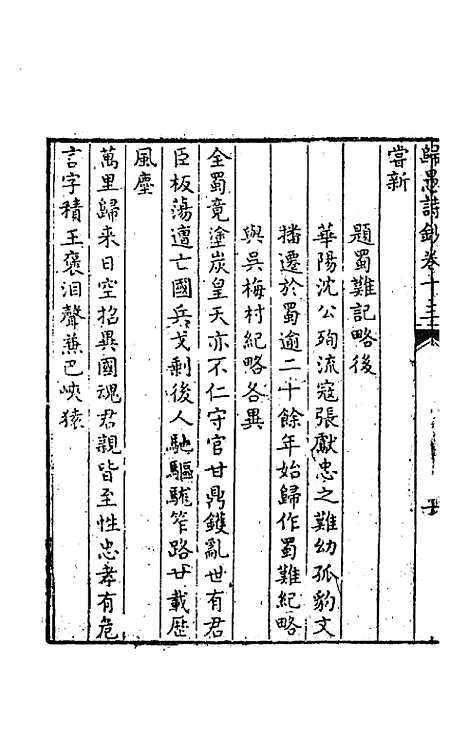 歸愚詩鈔卷十三
嘗新
題蜀難記略後
華陽沈公殉流寇張獻忠之難幼孤豹文
播遷於蜀逾二十餘年始歸作蜀難紀略
與吳梅村紀略各異
全蜀竟塗炭皇天亦不仁守官甘鼎鑊亂世有君
臣板蕩遭亡國兵戈剩後人馳驅駹筰路廿載歷
風塵
萬里歸来日空招異國魂君親皆至性忠孝有危
言字積王裒泪聲兼巴峽猿